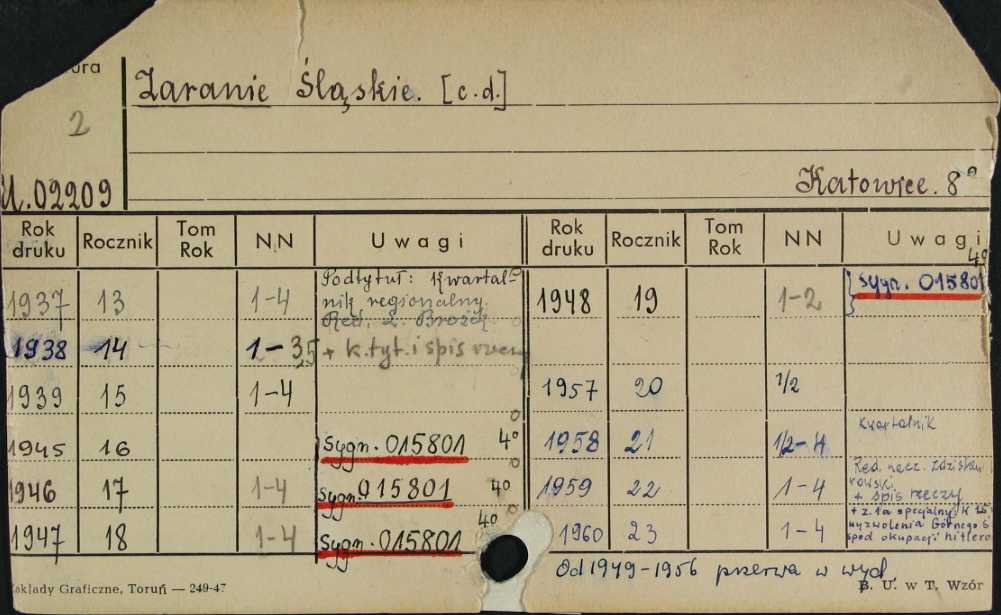 Zaranie Śląskie. [c.d.]
2
U.02209
Katowice. 8°
Rok druku Rocznik Tom Rok NN Uwagi Rok druku Rocznik Tom Rok NN Uwagi
4°
1937 13 1-4 Podtytuł: Kwartal-
nik regionalny.
Red. L. Brożek
1948 19 1-2 Sygn. 015801
1938 14 1-3 + k.tyt. i spis
1939 15 1-4
1957 20 1/2
1945 16 Sygn. 015801 4°
1958 21 1/2-4 Kwartalnik
1946 17 1-4 Sygn. 015801 4°
1959 22 1-4 Red. nacz.
+ spis rzeczy
1947 18 1-4 Sygn. 015801 4°
1960 23 1-4 + z. 1a specjalny
wyzwolenia Górnego Ś
spod okupacji hitlero
Od 1949-1956 przerwa w wyd.
akłady Graficzne, Toruń — 249-47
B. U. w T. Wzór